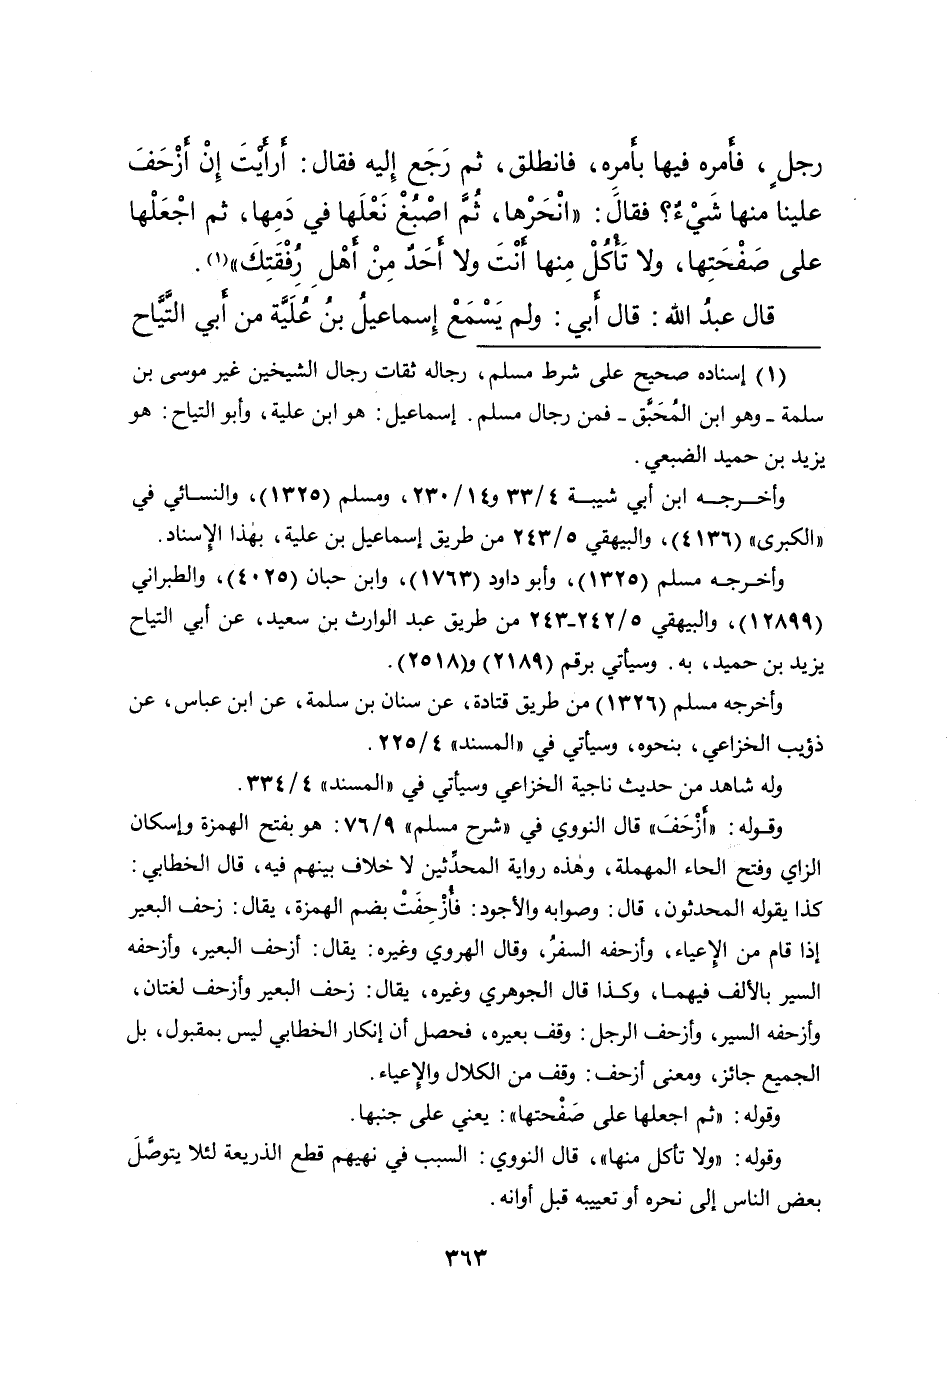 رجلٍ، فأَمره فيها بأَمرِه، فانطلق، ثم رَجَع إِليه فقال: أَرأَيْتَ إِنْ أَزْحَفَ
علينا منها شَيْءٌ؟ فقالَ: «انْحَرْها، ثُمَّ اصْبُغْ نَعْلَها في دَمِها، ثم اجْعَلْها
على صَفْحَتِها، ولا تَأْكُلْ مِنها أَنْتَ ولا أَحَدٌ مِنْ أَهْلِ رُفْقَتِكَ»(١).
قال عبدُ الله: قال أَبي: ولم يَسْمَعْ إِسماعيلُ بنُ عُلَيَّة من أَبي التَّيَّاح
(١) إسناده صحيح على شرط مسلم، رجاله ثقات رجال الشيخين غير موسى بن
سلمة ـ وهو ابن المُحَبَّق ـ فمن رجال مسلم. إسماعيل: هو ابن علية، وأبو التياح: هو
يزيد بن حميد الضبعي.
وأخرجه ابن أبي شيبة ٣٣/٤ و٢٣٠/١٤، ومسلم (١٣٢٥)، والنسائي في
«الكبرى» (٤١٣٦)، والبيهقي ٢٤٣/٥ من طريق إسماعيل بن علية، بهٰذا الإسناد.
وأخرجه مسلم (١٣٢٥)، وأبو داود (١٧٦٣)، وابن حبان (٤٠٢٥)، والطبراني
(١٢٨٩٩)، والبيهقي ٢٤٢/٥-٢٤٣ من طريق عبد الوارث بن سعيد، عن أبي التياح
يزيد بن حميد، به. وسيأتي برقم (٢١٨٩) و(٢٥١٨).
وأخرجه مسلم (١٣٢٦) من طريق قتادة، عن سنان بن سلمة، عن ابن عباس، عن
ذؤيب الخزاعي، بنحوه، وسيأتي في «المسند» ٢٢٥/٤.
وله شاهد من حديث ناجية الخزاعي وسيأتي في «المسند» ٣٣٤/٤.
وقوله: «أَزْحَفَ» قال النووي في «شرح مسلم» ٧٦/٩: هو بفتح الهمزة وإسكان
الزاي وفتح الحاء المهملة، وهٰذه رواية المحدِّثين لا خلاف بينهم فيه، قال الخطابي:
كذا يقوله المحدثون، قال: وصوابه والأجود: فأُزْحِفَتْ بضم الهمزة، يقال: زحف البعير
إذا قام من الإعياء، وأزحفه السفرُ، وقال الهروي وغيره: يقال: أزحف البعير، وأزحفه
السير بالألف فيهما، وكذا قال الجوهري وغيره، يقال: زحف البعير وأزحف لغتان،
وأزحفه السير، وأزحف الرجل: وقف بعيره، فحصل أن إنكار الخطابي ليس بمقبول، بل
الجميع جائز، ومعنى أزحف: وقف من الكلال والإعياء.
وقوله: «ثم اجعلها على صَفْحتها»: يعني على جنبها.
وقوله: «ولا تأكل منها»، قال النووي: السبب في نهيهم قطع الذريعة لئلا يتوصَّلَ
بعض الناس إلى نحره أو تعييبه قبل أوانه.
٣٦٣